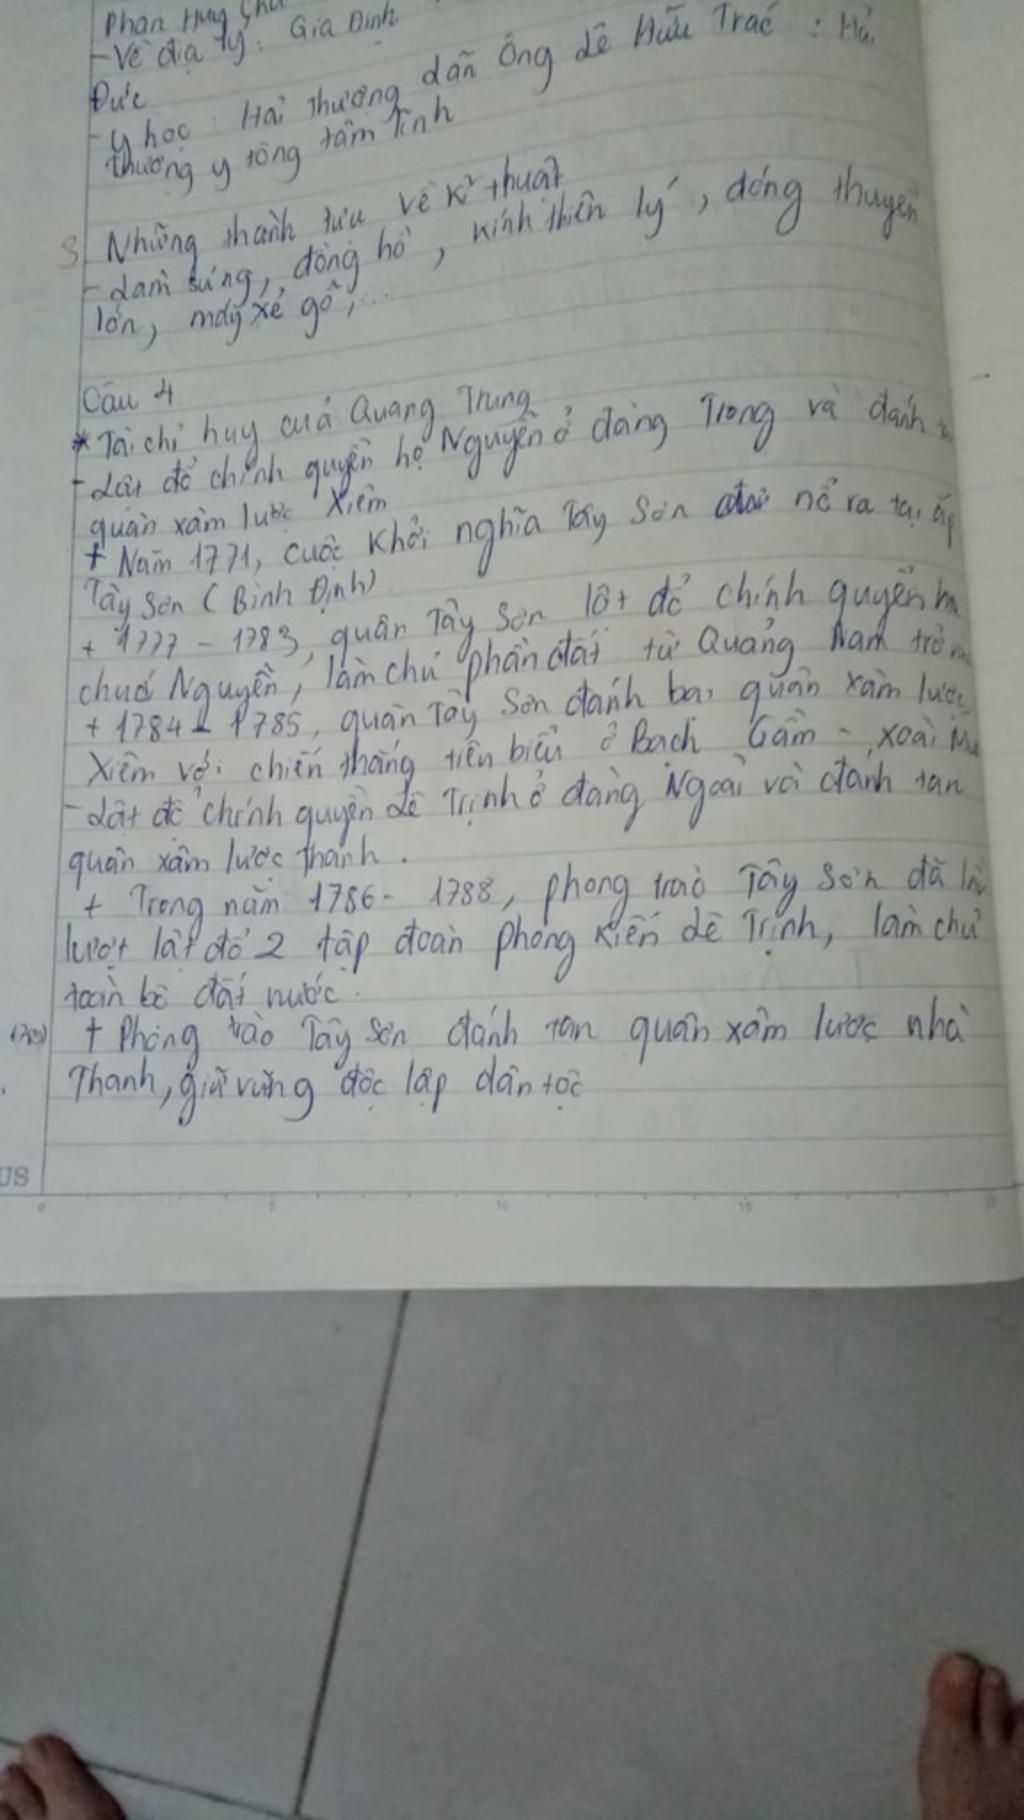 Phan Huy Chú
- Về địa lý: Gia Định
Đức
- y học: Hải thượng dãn Ông Lê Hữu Trác: Hải
thượng y tông tâm lĩnh
3 Những thành tựu về kĩ thuật
- Làm súng, đồng hồ, kính thiên lý, đóng thuyền
lớn, máy xẻ gỗ,...
Câu 4
* Tài chỉ huy của Quang Trung
- Lật đổ chính quyền họ Nguyễn ở đàng Trong và đánh
quân xâm lược Xiêm
+ Năm 1771, cuộc khởi nghĩa Tây Sơn nổ ra tại ấp
Tây Sơn (Bình Định)
+ 1777 - 1783, quân Tây Sơn lật đổ chính quyền
chúa Nguyễn, làm chủ phần đất từ Quảng Nam trở
+ 1784 - 1785, quân Tây Sơn đánh bại quân xâm lược
Xiêm với chiến thắng tiêu biểu ở Bạch Gầm - Xoài
- Lật đổ chính quyền Lê Trịnh ở đàng Ngoài và đánh tan
quân xâm lược Thanh.
+ Trong năm 1786 - 1788, phong trào Tây Sơn đã
lượt lật đổ 2 tập đoàn phong kiến Lê Trịnh, làm chủ
toàn bộ đất nước.
+ Phong trào Tây Sơn đánh tan quân xâm lược nhà
Thanh, giữ vững độc lập dân tộc
US
0 5 10 15